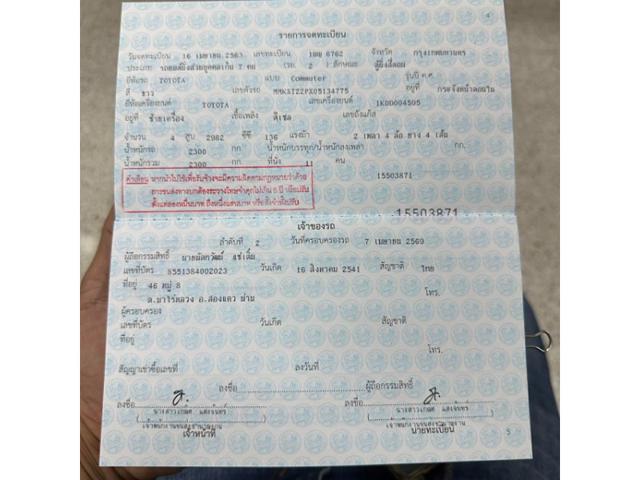 รายการจดทะเบียน
วันจดทะเบียน 16 เมษายน 2563 เลขทะเบียน 6762 จังหวัด กรุงเทพมหานคร
ประเภท รถยนต์นั่งส่วนบุคคลเกิน 7 คน (รย. 2 ) ลักษณะ ตู้นั่งสี่ตอน
ยี่ห้อรถ TOYOTA แบบ Commuter รุ่นปี ค.ศ.
สี ขาว เลขตัวรถ อยู่ที่
ยี่ห้อเครื่องยนต์ TOYOTA เลขเครื่องยนต์ 1KD0004505
อยู่ที่ ซ้ายเครื่อง เชื้อเพลิง ดีเซล เลขถังแก๊ส
จำนวน 4 สูบ 2982 ซีซี 136 แรงม้า 2 เพลา 4 ล้อ ยาง 4 เส้น
น้ำหนักรถ 2300 กก. น้ำหนักบรรทุก/น้ำหนักลงเพลา กก.
น้ำหนักรวม 2300 กก. ที่นั่ง 11 คน
15503871
คำเตือน หากนำไปใช้เพื่อรับจ้างจะมีความผิดตามกฎหมายว่าด้วย
การขนส่งทางบกต้องระวางโทษจำคุกไม่เกิน 5 ปี หรือปรับ
ตั้งแต่สองหมื่นบาท ถึงหนึ่งแสนบาท หรือทั้งจำทั้งปรับ
15503871
เจ้าของรถ
ลำดับที่ 2 วันที่ครอบครองรถ 7 เมษายน 2569
ผู้ถือกรรมสิทธิ์
เลขที่บัตร 8551384002023 วันเกิด 16 สิงหาคม 2541 สัญชาติ ไทย
ที่อยู่ 46 หมู่ 8 โทร.
อ.สองแคว น่าน
ผู้ครอบครอง
เลขที่บัตร วันเกิด สัญชาติ
ที่อยู่
โทร.
สัญญาเช่าซื้อเลขที่ ลงวันที่
ลงชื่อ ผู้ถือกรรมสิทธิ์
ลงชื่อ ลงชื่อ
เจ้าหน้าที่ นายทะเบียน
5